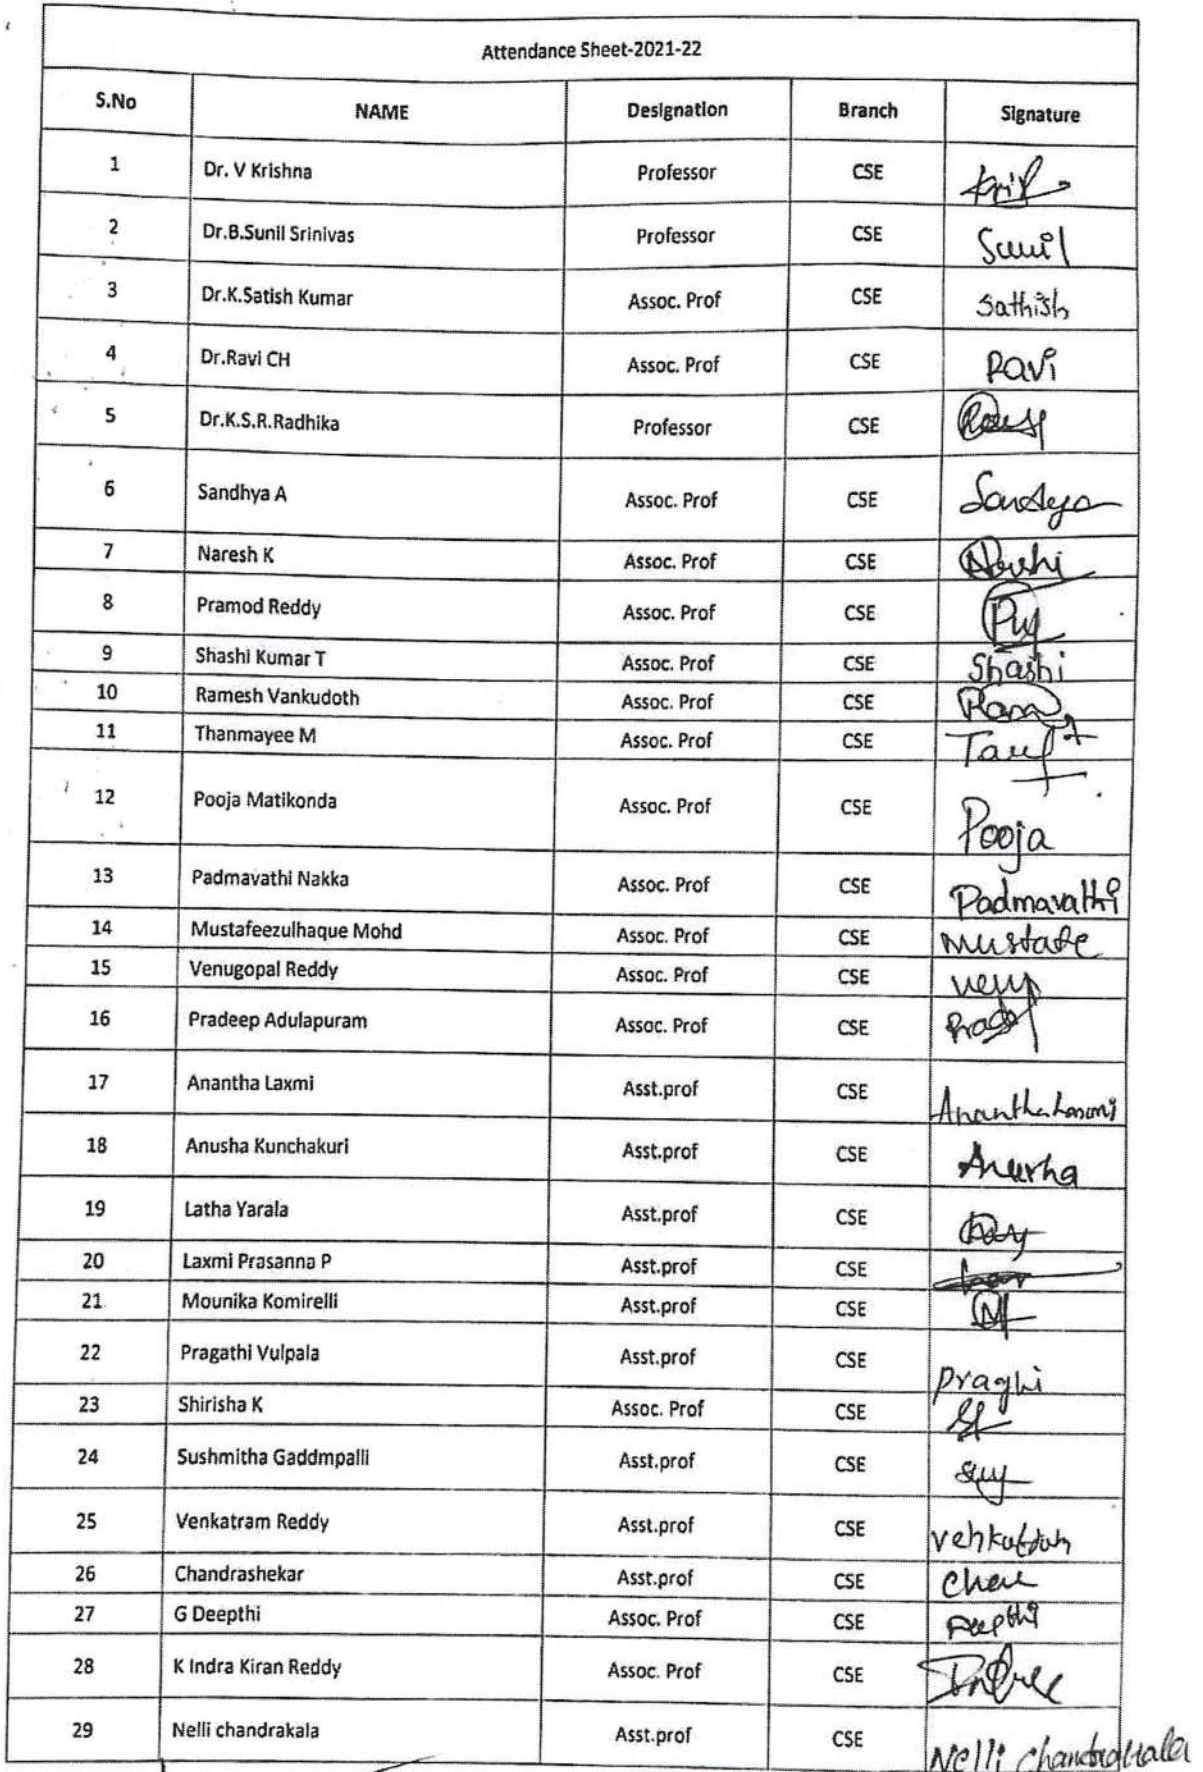 Attendance Sheet-2021-22
S.No NAME Designation Branch Signature
1 Dr. V Krishna Professor CSE
2 Dr.B.Sunil Srinivas Professor CSE Sunil
3 Dr.K.Satish Kumar Assoc. Prof CSE Sathish
4 Dr.Ravi CH Assoc. Prof CSE Ravi
5 Dr.K.S.R.Radhika Professor CSE
6 Sandhya A Assoc. Prof CSE
7 Naresh K Assoc. Prof CSE
8 Pramod Reddy Assoc. Prof CSE
9 Shashi Kumar T Assoc. Prof CSE Shashi
10 Ramesh Vankudoth Assoc. Prof CSE
11 Thanmayee M Assoc. Prof CSE
12 Pooja Matikonda Assoc. Prof CSE Pooja
13 Padmavathi Nakka Assoc. Prof CSE Padmavathi
14 Mustafeezulhaque Mohd Assoc. Prof CSE
15 Venugopal Reddy Assoc. Prof CSE
16 Pradeep Adulapuram Assoc. Prof CSE
17 Anantha Laxmi Asst.prof CSE
18 Anusha Kunchakuri Asst.prof CSE Anusha
19 Latha Yarala Asst.prof CSE
20 Laxmi Prasanna P Asst.prof CSE
21 Mounika Komirelli Asst.prof CSE
22 Pragathi Vulpala Asst.prof CSE
23 Shirisha K Assoc. Prof CSE
24 Sushmitha Gaddmpalli Asst.prof CSE
25 Venkatram Reddy Asst.prof CSE
26 Chandrashekar Asst.prof CSE
27 G Deepthi Assoc. Prof CSE Deepthi
28 K Indra Kiran Reddy Assoc. Prof CSE
29 Nelli chandrakala Asst.prof CSE Nelli Chandrakala